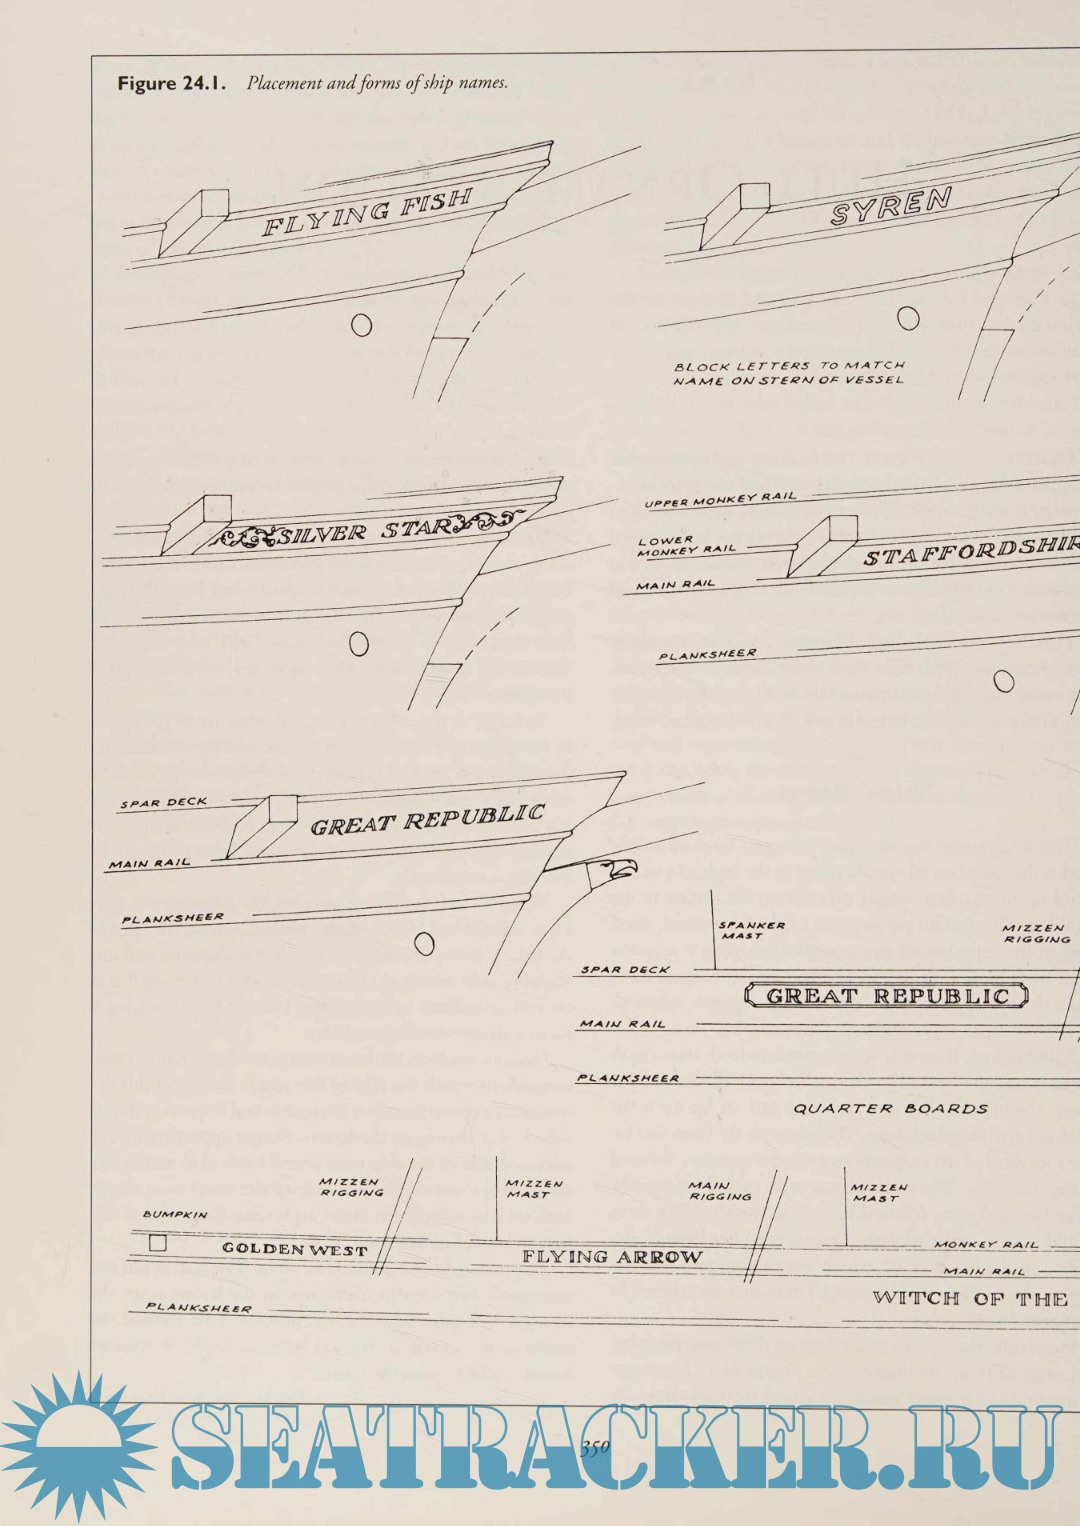 Figure 24.1. Placement and forms of ship names.
FLYING FISH
SYREN
BLOCK LETTERS TO MATCH
NAME ON STERN OF VESSEL
SILVER STAR
UPPER MONKEY RAIL
LOWER
MONKEY RAIL
MAIN RAIL
STAFFORDSHIR
PLANKSHEER
SPAR DECK
GREAT REPUBLIC
MAIN RAIL
PLANKSHEER
SPANKER
MAST
MIZZEN
RIGGING
SPAR DECK
GREAT REPUBLIC
MAIN RAIL
PLANKSHEER
QUARTER BOARDS
MIZZEN
RIGGING
MIZZEN
MAST
MAIN
RIGGING
MIZZEN
MAST
BUMPKIN
GOLDEN WEST
FLYING ARROW
MONKEY RAIL
MAIN RAIL
WITCH OF THE
PLANKSHEER
350
SEATRACKER.RU